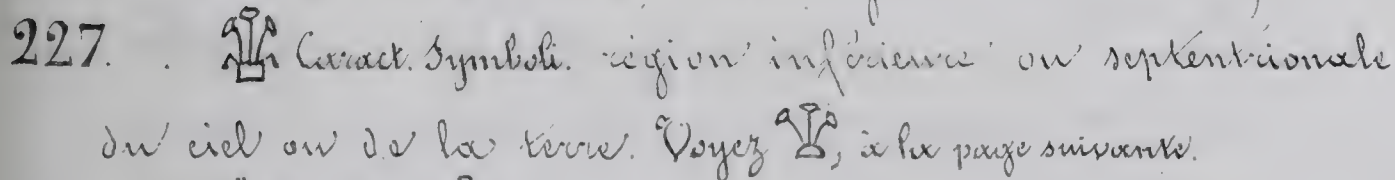 227. . Caract. Symboli. région inférieure ou septentrionale
du ciel ou de la terre. Voyez , à la page suivante.